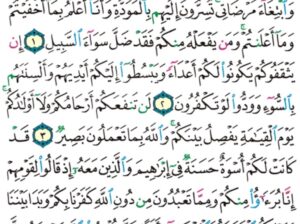 وَٱبْتِغَآءَ مَرْضَاتِى تُسِرُّونَ إِلَيْهِم بِٱلْمَوَدَّةِ وَأَنَا۠ أَعْلَمُ بِمَآ أَخْفَيْتُمْ
وَمَآ أَعْلَنتُمْ وَمَن يَفْعَلْهُ مِنكُمْ فَقَدْ ضَلَّ سَوَآءَ ٱلسَّبِيلِ ١ إِن
يَثْقَفُوكُمْ يَكُونُوا۟ لَكُمْ أَعْدَآءً وَيَبْسُطُوٓا۟ إِلَيْكُمْ أَيْدِيَهُمْ وَأَلْسِنَتَهُم
بِٱلسُّوٓءِ وَوَدُّوا۟ لَوْ تَكْفُرُونَ ٢ لَن تَنفَعَكُمْ أَرْحَامُكُمْ وَلَآ أَوْلَٰدُكُمْ
يَوْمَ ٱلْقِيَٰمَةِ يَفْصِلُ بَيْنَكُمْ وَٱللَّهُ بِمَا تَعْمَلُونَ بَصِيرٌ ٣ قَدْ
كَانَتْ لَكُمْ أُسْوَةٌ حَسَنَةٌ فِىٓ إِبْرَٰهِيمَ وَٱلَّذِينَ مَعَهُۥٓ إِذْ قَالُوا۟ لِقَوْمِهِمْ
إِنَّا بُرَءَٰٓؤُا۟ مِنكُمْ وَمِمَّا تَعْبُدُونَ مِن دُونِ ٱللَّهِ كَفَرْنَا بِكُمْ وَبَدَا بَيْنَنَا